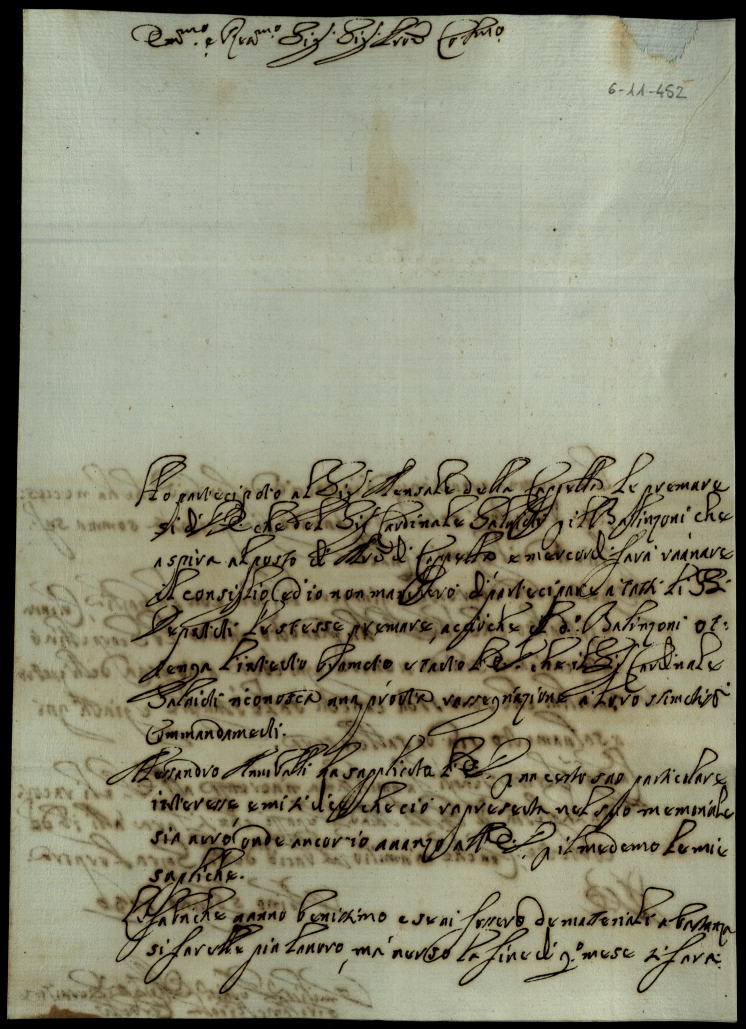 Em.mo e Rev.mo Sig.r Sig.r Pron Col.mo
6-11-452
Ho partecipato al Sig.r Mensale della Cappella le premure
si di V.E. che del Sig. Cardinale Salviati il Balinzoni che
aspira al posto di di Cappella e mercordi farà raunare
il consiglio, ed io non mancherò di partecipare a tutti li SS.ri
Deputati le stesse premure, acciòche il d.o Balinzoni ot:
tenga l'intento bramato e tanto V.E. che il Sig. Cardinale
Salviati riconosca una pronta rassegnazione a loro stimatiss.i
Commandamenti.
Alessandro Annibali ha supplicato V.E. p. un certo suo particulare
interesse e mi dice che ciò rapresenta nel suo memoriale
sia vero, onde ancor io avanzo all' E.V. p. il medemo le mie
supliche.
Le fabriche vanno benissimo e se vi fossero de materiali a bastanza
si farebbe più lavoro, mà verso la fine di q.o mese si farà